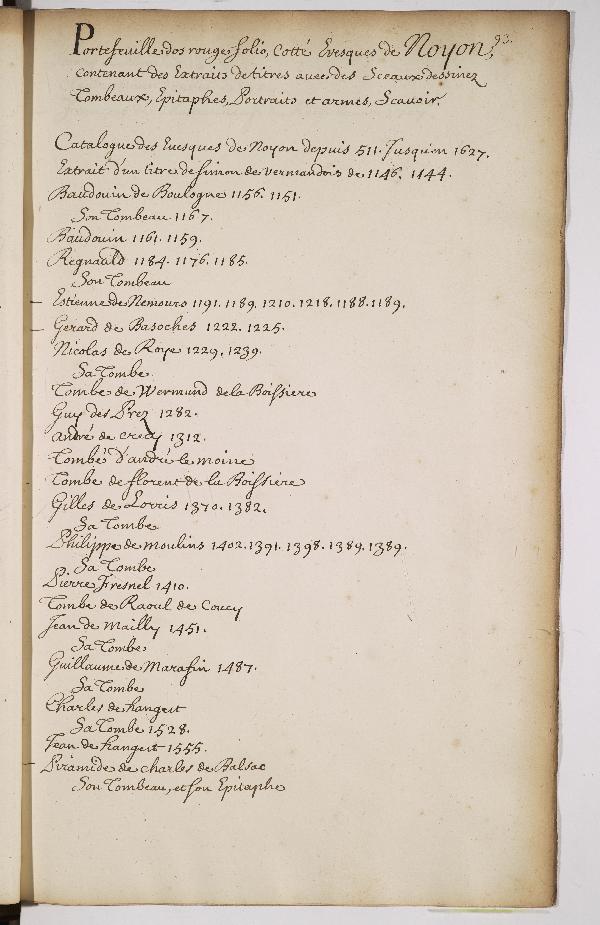 93.
Portefeuille dos rouge folio, Cotté Evesques de Noyon,
contenant des Extraits de titres avec des Sceaux dessinez
Tombeaux, Epitaphes, Portraits et armes, Scavoir.
Catalogue des Evesques de Noyon depuis 511. Jusqu'en 1627.
Extrait d'un titre de Simon de Vermandois de 1146. 1144.
Baudouin de Boulogne 1156. 1151.
Son Tombeau 1167.
Baudouin 1161. 1159.
Regnauld 1184. 1176. 1185.
Son Tombeau
Estienne de Nemours 1191. 1189. 1210. 1218. 1188. 1189.
Gerard de Basoches 1222. 1225.
Nicolas de Roye 1229. 1239.
Sa Tombe
Tombe de Wermund de la Boissiere
Guy des Prez 1282.
André de Crecy 1312.
Tombe d'andré le moine
Tombe de florent de la Boissiere
Gilles de Lorris 1370. 1382.
Sa Tombe
Philippe de moulins 1402. 1391. 1398. 1389. 1389.
Sa Tombe
Pierre Fresnel 1410.
Tombe de Raoul de Coucy
Jean de Mailly 1451.
Sa Tombe
Guillaume de Marafin 1487.
Sa Tombe
Charles de hangest
Sa Tombe 1528.
Jean de hangest 1555.
Piramide de charles de Balsac
Son Tombeau, et son Epitaphe